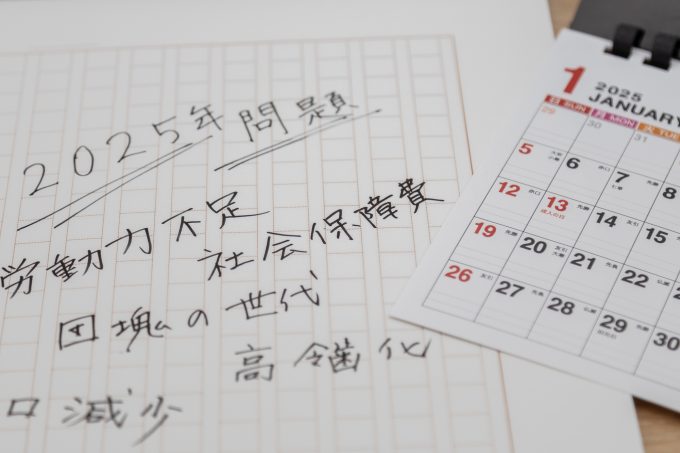 2025年 問題
労動力不足
社会保障費
団塊の世代
高齢化
口減少
1 2025
JANUARY
日 SUN 月 MON 火 TUE
29 30 31
5 6 7 8
12 13 14 15
成人の日
19 20 21 22
26 27 28 29 30